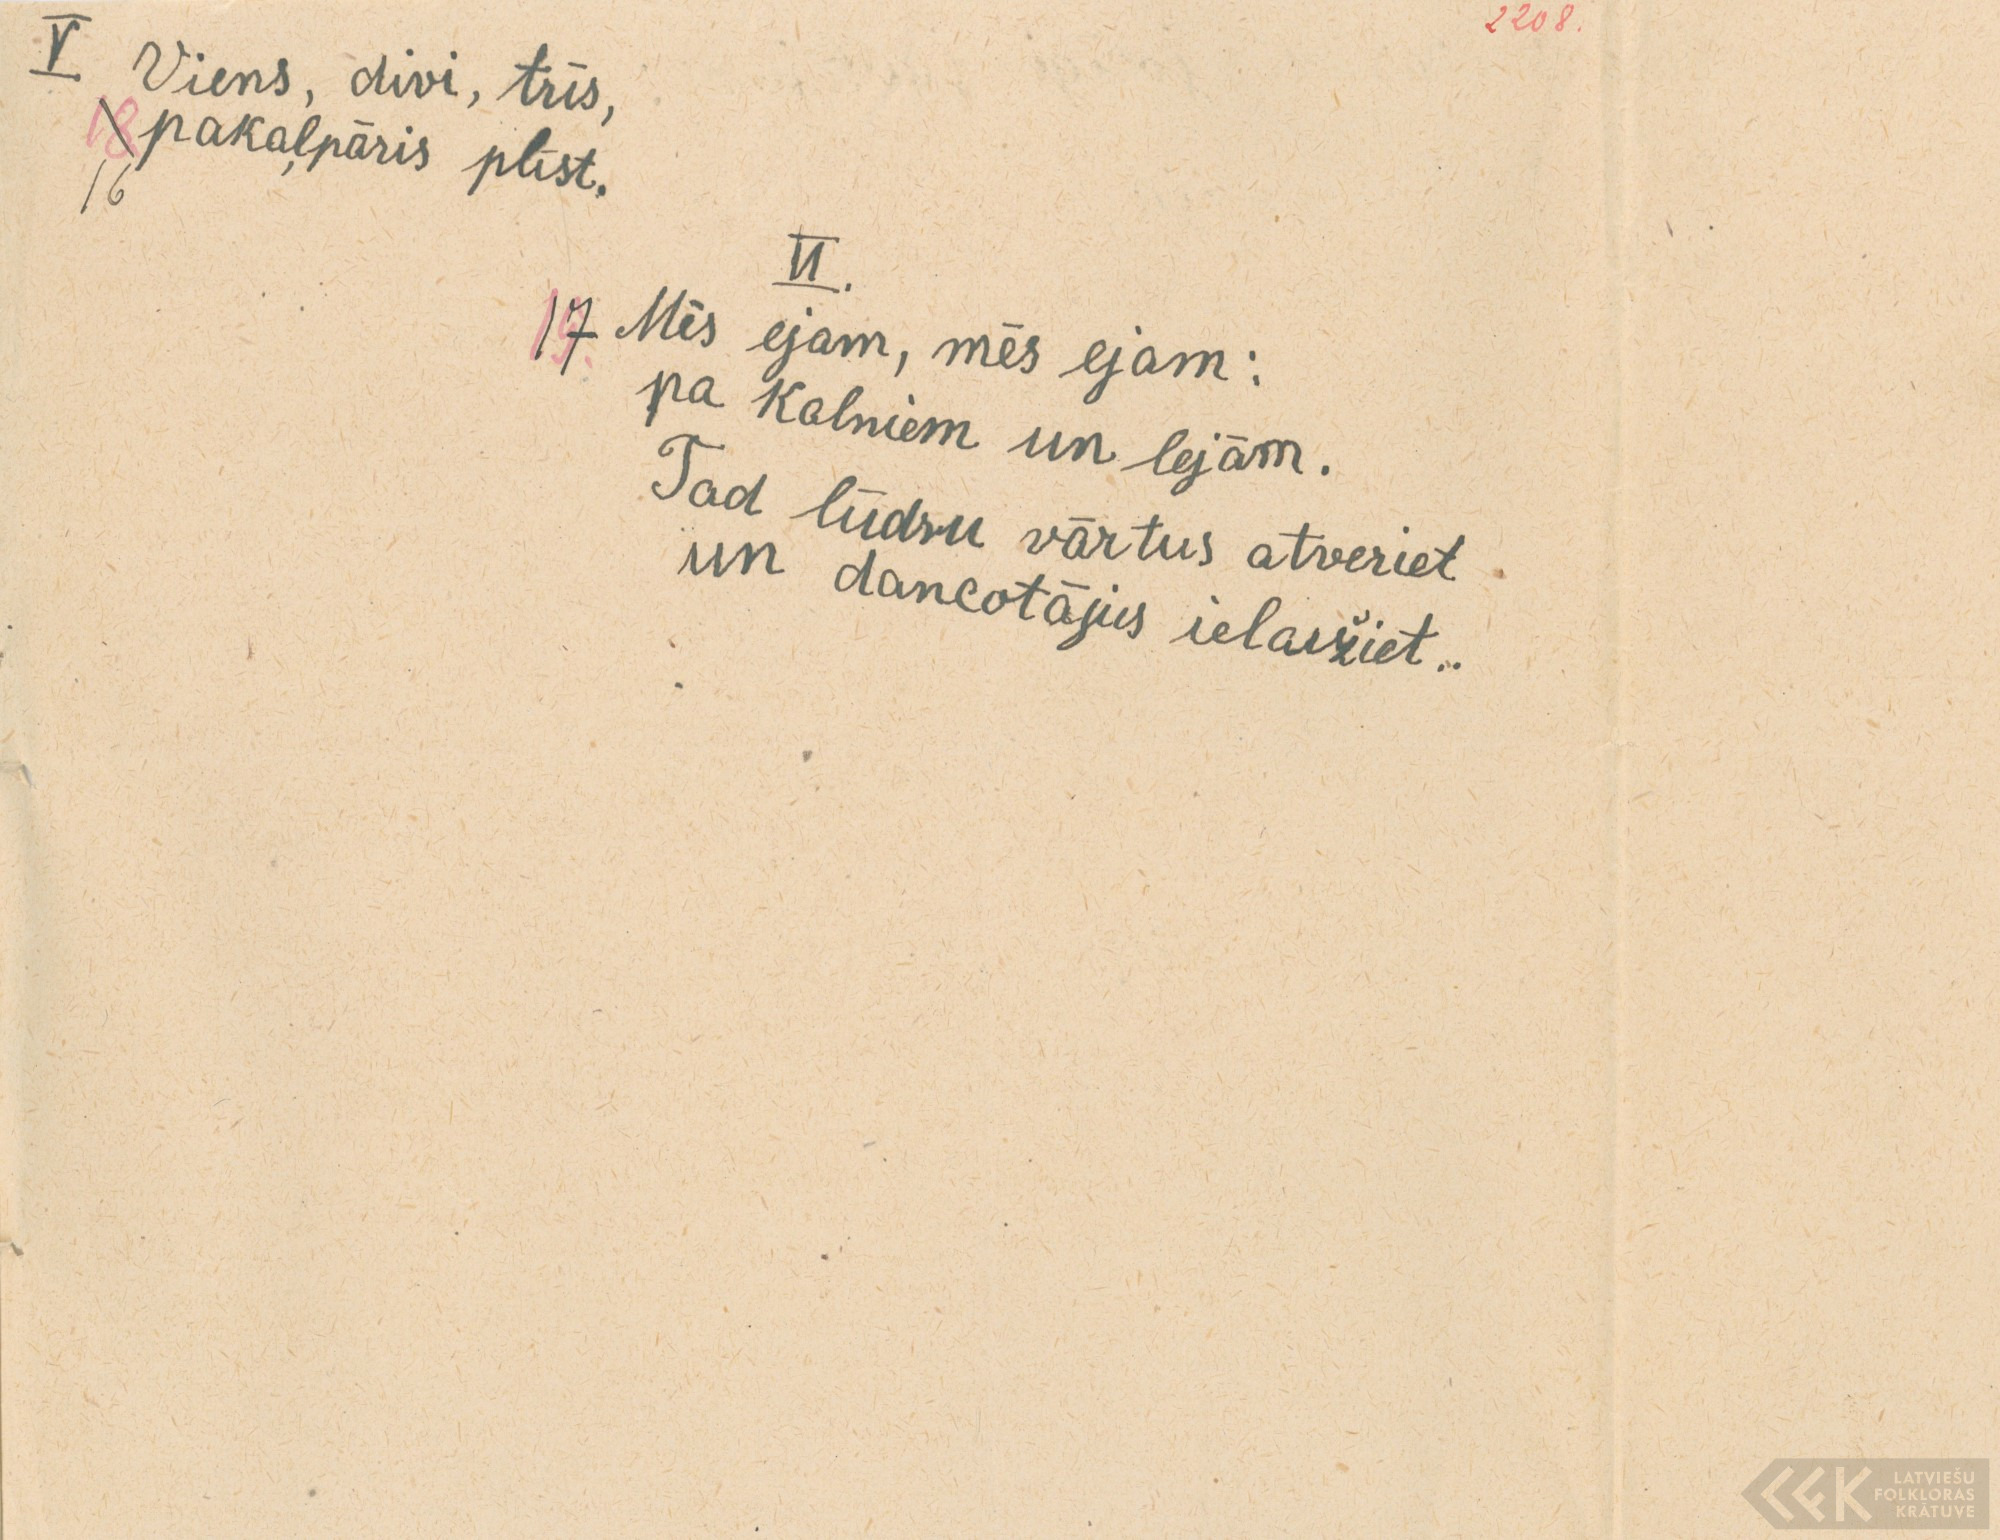 2208.
V Viens, divi, trīs,
18 pakaļpāris plīst.
16
VI.
17 Mēs ejam, mēs ejam:
pa kalniem un lejām.
Tad lūdzu vārtus atveriet
un dancotājus ielaižiet..
LATVIEŠU
FOLKLORAS
KRĀTUVE